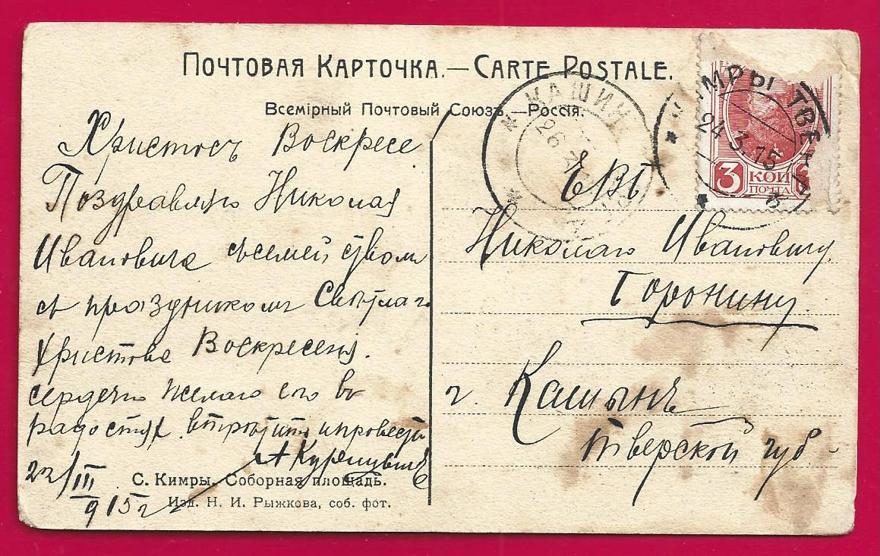 Почтовая Карточка.—Carte Postale.
Всемірный Почтовый Союзъ.—Россія.
Христосъ Воскресе
Поздравляю Николая
Ивановича съ семействомъ
съ праздникомъ Светлаг.
Христова Воскресеня.
сердечно желаю его въ
радостях встретить и провести
22/III
915 г
С. Кимры. Соборная площадь.
Изд. Н. И. Рыжкова, соб. фот.
КАШИН
26
КИМРЫ ТВЕР
24 3 15
3 КОП
ПОЧТА
ЕВБ
Николаю Ивановичу
Горонину
г. Кашынъ
Тверской губ